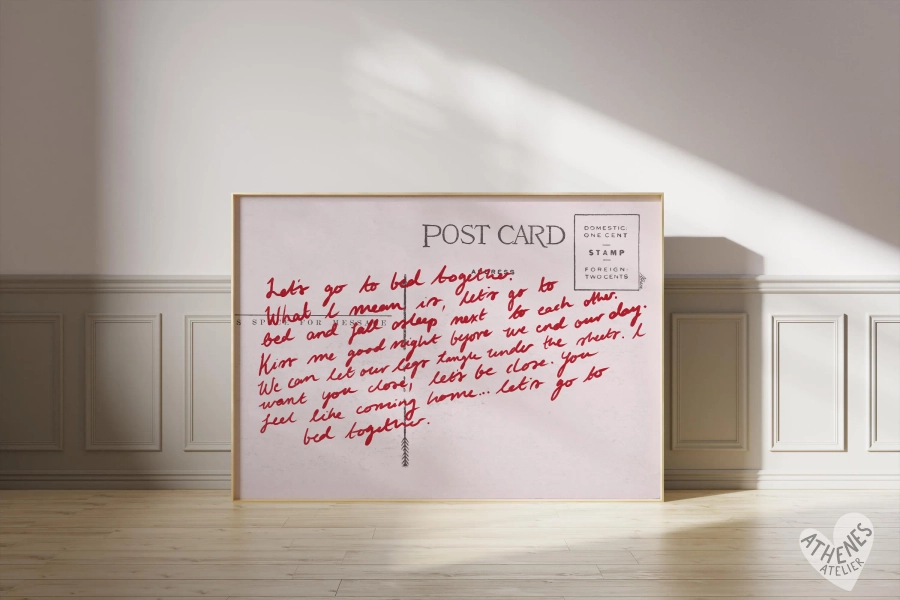 POST CARD
DOMESTIC:
ONE CENT
STAMP
FOREIGN:
TWO CENTS
ADDRESS
S SPACE FOR MESSAGE
Let's go to bed together.
What I mean is, let's go to
bed and fall asleep next to each other.
Kiss me goodnight before we end our day.
We can let our legs tangle under the sheets. I
want you close, let's be close. You
feel like coming home... let's go to
bed together.
ATHENES
ATELIER